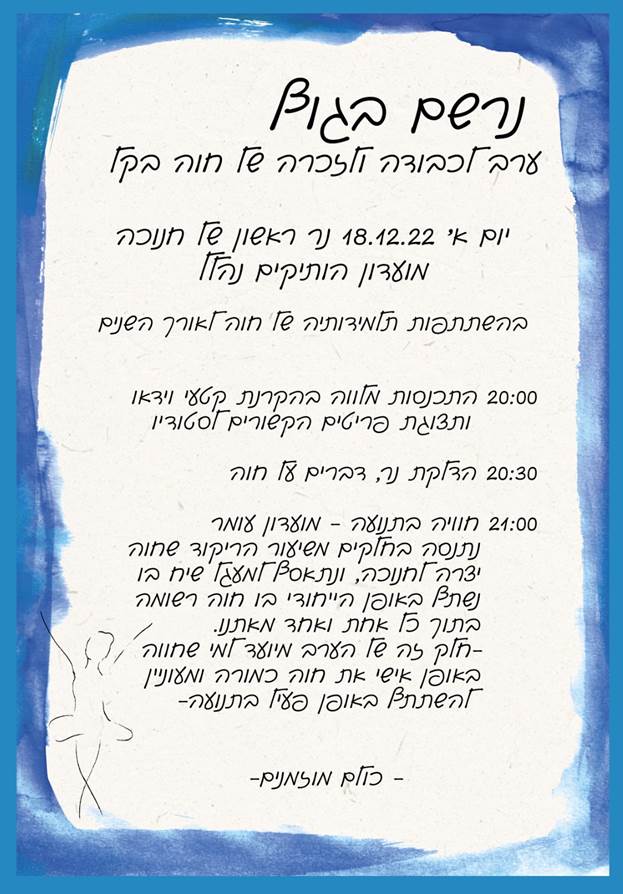 נרשם בגוף
ערב לכבודה ולזכרה של חוה בקל
יום א' 18.12.22 נר ראשון של חנוכה
מועדון הותיקים נהלל
בהשתתפות תלמידותיה של חוה לאורך השנים
20:00 התכנסות מלווה בהקרנת קטעי וידאו
ותצוגת פריטים הקשורים לסטודיו
20:30 הדלקת נר, דברים על חוה
21:00 חוויה בתנועה - מועדון עומר
נתנסה בחלקים משיעור הריקוד שחוה
יצרה לחנוכה, ונתאסף למעגל שיח בו
נשתף באופן הייחודי בו חוה רשומה
בתוך כל אחת ואחד מאתנו.
-חלק זה של הערב מיועד למי שחווה
באופן אישי את חוה כמורה ומעונין
להשתתף באופן פעיל בתנועה-
- כולם מוזמנים-